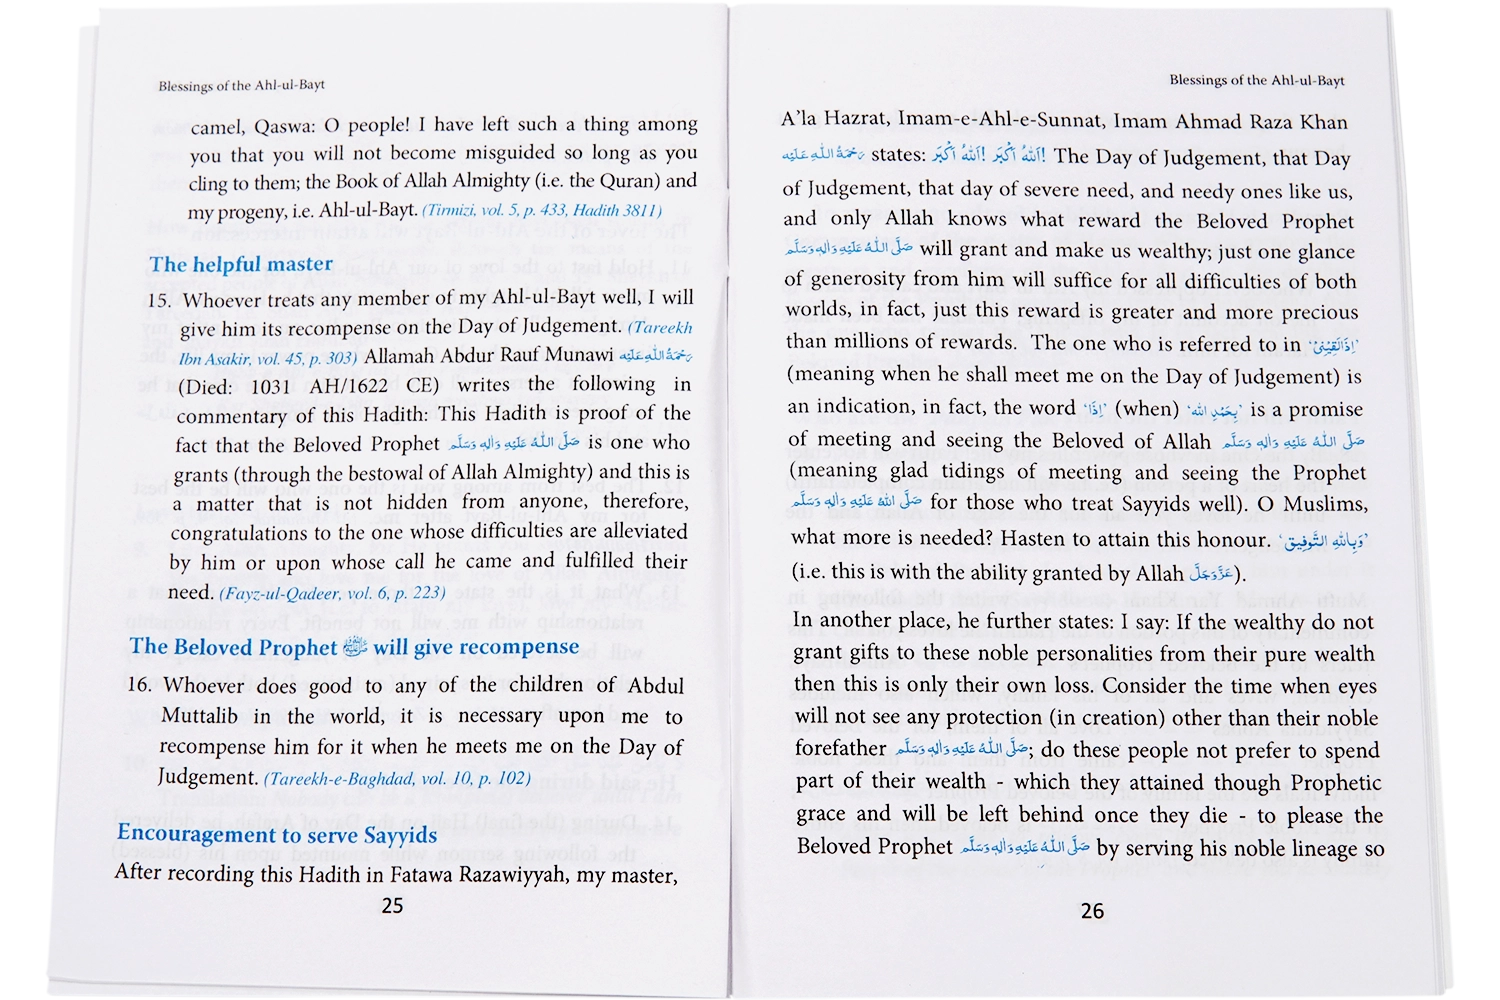 Blessings of the Ahl-ul-Bayt
camel, Qaswa: O people! I have left such a thing among
you that you will not become misguided so long as you
cling to them; the Book of Allah Almighty (i.e. the Quran) and
my progeny, i.e. Ahl-ul-Bayt. (Tirmizi, vol. 5, p. 433, Hadith 3811)
The helpful master
15. Whoever treats any member of my Ahl-ul-Bayt well, I will
give him its recompense on the Day of Judgement. (Tareekh
Ibn Asakir, vol. 45, p. 303) Allamah Abdur Rauf Munawi رَحْمَةُ اللهِ عَلَيْه
(Died: 1031 AH/1622 CE) writes the following in
commentary of this Hadith: This Hadith is proof of the
fact that the Beloved Prophet صَلَّى اللهُ عَلَيْهِ وَاٰلِهٖ وَسَلَّم is one who
grants (through the bestowal of Allah Almighty) and this is
a matter that is not hidden from anyone, therefore,
congratulations to the one whose difficulties are alleviated
by him or upon whose call he came and fulfilled their
need. (Fayz-ul-Qadeer, vol. 6, p. 223)
The Beloved Prophet ﷺ will give recompense
16. Whoever does good to any of the children of Abdul
Muttalib in the world, it is necessary upon me to
recompense him for it when he meets me on the Day of
Judgement. (Tareekh-e-Baghdad, vol. 10, p. 102)
Encouragement to serve Sayyids
After recording this Hadith in Fatawa Razawiyyah, my master,
25
Blessings of the Ahl-ul-Bayt
A'la Hazrat, Imam-e-Ahl-e-Sunnat, Imam Ahmad Raza Khan
رَحْمَةُ اللهِ عَلَيْه states: اَللهُ اَكْبَر! اَللهُ اَكْبَر! The Day of Judgement, that Day
of Judgement, that day of severe need, and needy ones like us,
and only Allah knows what reward the Beloved Prophet
صَلَّى اللهُ عَلَيْهِ وَاٰلِهٖ وَسَلَّم will grant and make us wealthy; just one glance
of generosity from him will suffice for all difficulties of both
worlds, in fact, just this reward is greater and more precious
than millions of rewards. The one who is referred to in 'اِذَا لَقِيَنِيْ'
(meaning when he shall meet me on the Day of Judgement) is
an indication, in fact, the word 'اِذَا' (when) 'بِحَمْدِ الله' is a promise
of meeting and seeing the Beloved of Allah صَلَّى اللهُ عَلَيْهِ وَاٰلِهٖ وَسَلَّم
(meaning glad tidings of meeting and seeing the Prophet
صَلَّى اللهُ عَلَيْهِ وَاٰلِهٖ وَسَلَّم for those who treat Sayyids well). O Muslims,
what more is needed? Hasten to attain this honour. 'وَبِاللهِ التَّوفِيق'
(i.e. this is with the ability granted by Allah عَزَّوَجَلَّ).
In another place, he further states: I say: If the wealthy do not
grant gifts to these noble personalities from their pure wealth
then this is only their own loss. Consider the time when eyes
will not see any protection (in creation) other than their noble
forefather صَلَّى اللهُ عَلَيْهِ وَاٰلِهٖ وَسَلَّم; do these people not prefer to spend
part of their wealth - which they attained though Prophetic
grace and will be left behind once they die - to please the
Beloved Prophet صَلَّى اللهُ عَلَيْهِ وَاٰلِهٖ وَسَلَّم by serving his noble lineage so
26